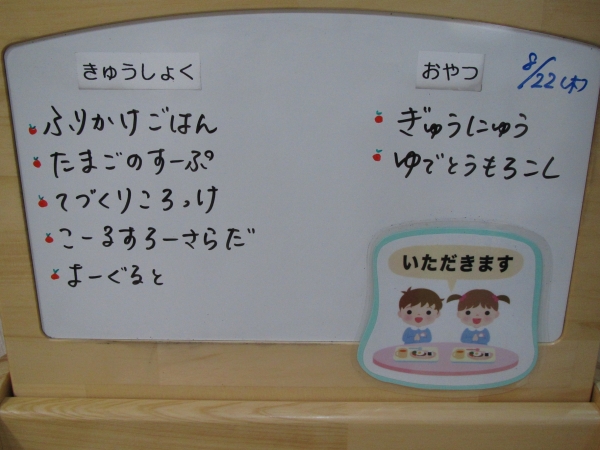 きゅうしょく
ふりかけごはん
たまごのすーぷ
てづくりころっけ
こーるすろーさらだ
よーぐると
おやつ
8/22(木)
ぎゅうにゅう
ゆでとうもろこし
いただきます